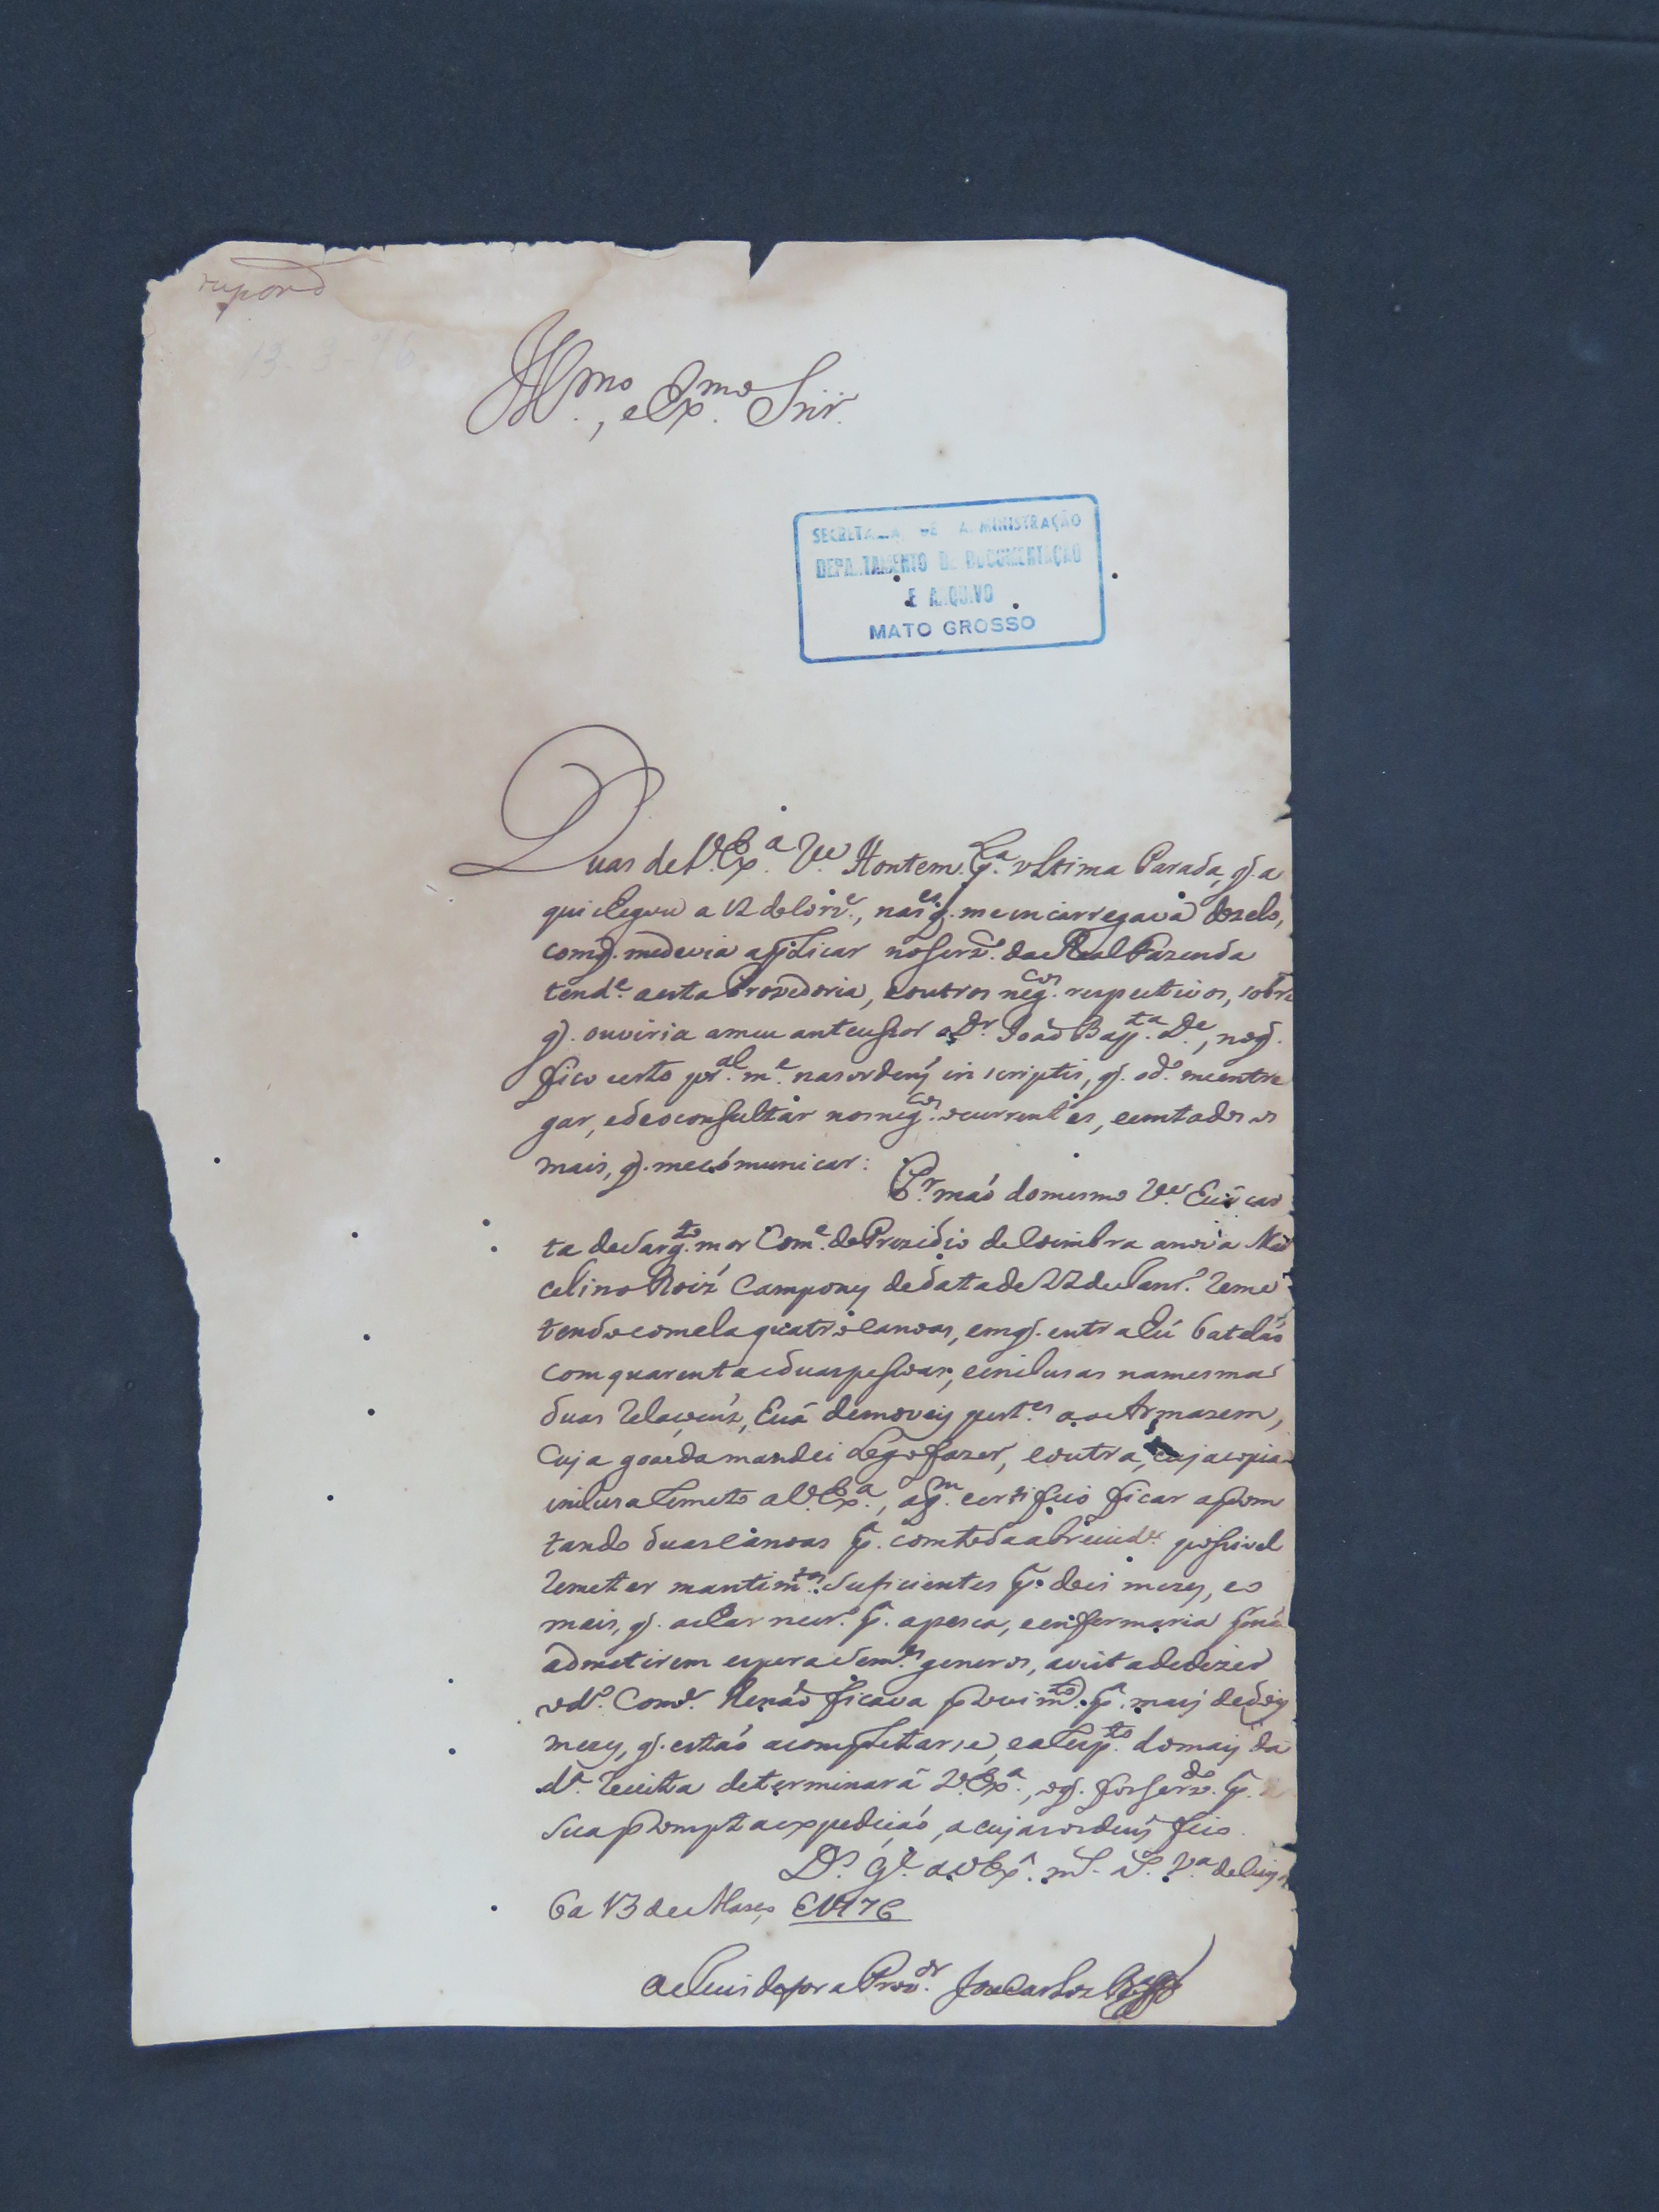 respond
13-3-76
Illmo., e Exmo. Snr.
SECRETARIA DE ADMINISTRAÇÃO
DEPARTAMENTO DE DOCUMENTAÇÃO
E ARQUIVO
MATO GROSSO
Duas de V. Exa. Hontem pa. ultima Parada, q. a
qui chegou a 12 do nas q. me incarregava do zelo,
com q. me devia applicar no serv. da Real Fazenda
tende. a esta Provedoria, e outros negcos. respectivos, sobre
q. ouviria a meu antecessor o Dr. João Bapta. De., no q.
fico certo pral. me. nas ordens in scriptis, q. o do. me entre
gar, e de o consultar nos negcos. ocurrentes, e em todos os
mais, q. me cómunicar:
Pr. maó do mesmo huá car
ta do Sargto. mor Come. do Prezidio de Coimbra a nova Mar
celino Roiz Campony de data de 22 de Janro. reme
tendo com ela quatro canoas, em q. entra hú batelaó
com quarenta e duas pessoas, e inclusas na mesma
duas relaçoens, huá pertes. ao Armazem,
cuja goarda mandei logo fazer, e outra, cuja copia
inclusa remeto a V. Exa., a qm. certifico ficar apron
tando duas canoas pa. com toda a brevide. possivel
remeter mantimtos. suficientes pa. dois mezes, e o
mais, q. achar necro. pa. a pesca, e enfermaria
admetirem espera semes. generos, a vista de dizer
o do. Come. que naó ficava provimto. pa. mais de dois
mezes, q. estaó a completarse, e a respto. do mais da
da. receita determinará V. Exa., o q. for servdo. pa. a
sua prompta expediçaó, a cujas ordens fico.
Ds. Ge. a V. Exa. ms. as. Va. de Cuya
ba 13 de Março
O de Fora e Provor. Joze Carlos